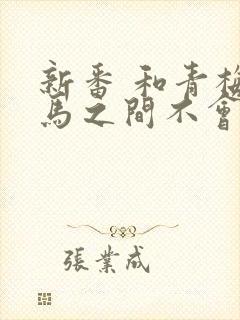 新番 和青梅
馬之間不會
張業成